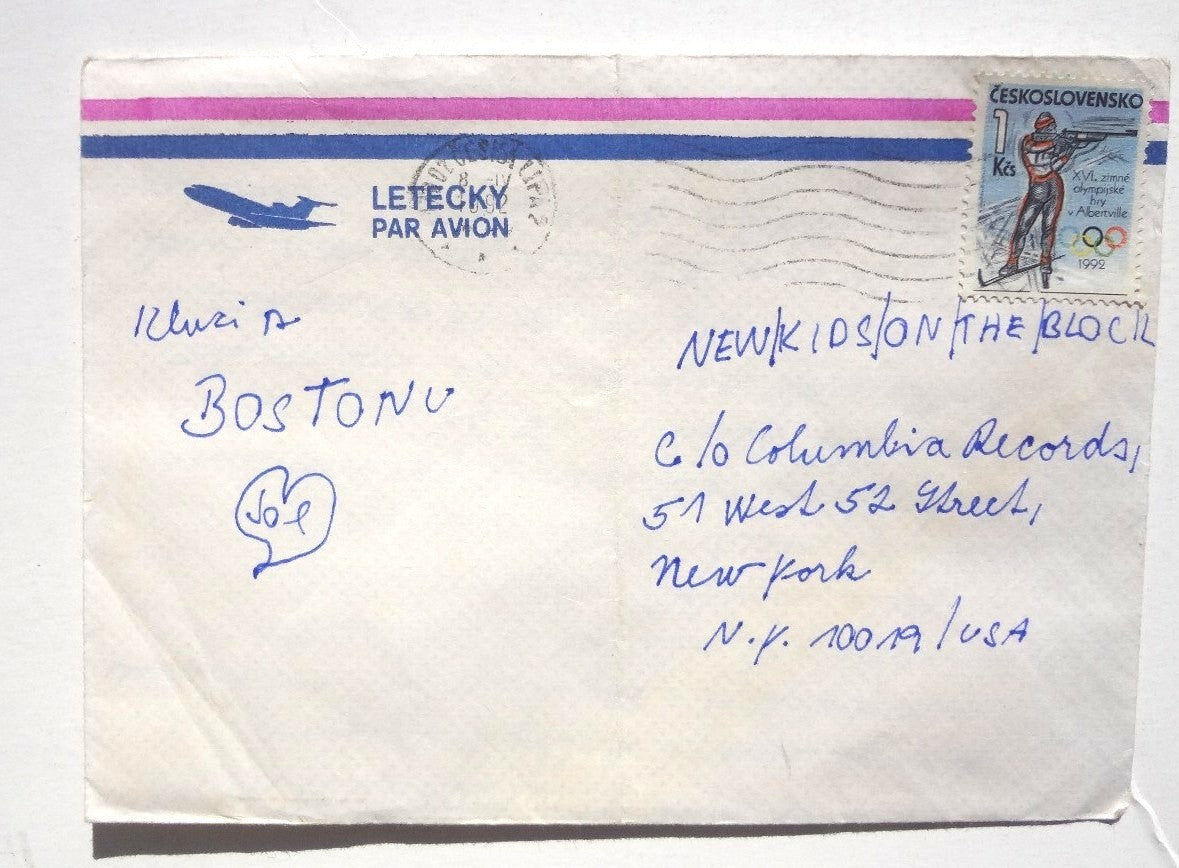 ČESKOSLOVENSKO
1
Kčs
XVI. zimné
olympijské
hry
v Albertville
1992
LETECKY
PAR AVION
ČESKÁ LÍPA 2
Kluci z
BOSTONU
Joe
NEW/KIDS/ON/THE/BLOCK
C/o Columbia Records,
51 West 52 Street,
New York
N.Y. 10019/USA